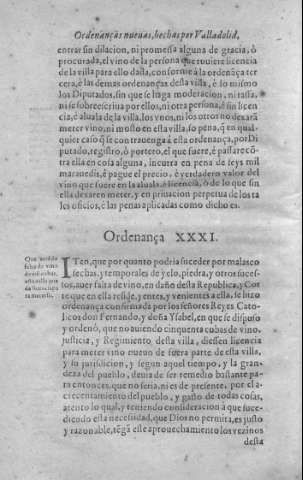 Ordenanças nueuas, hechas por Valladolid,
entrar sin dilacion, ni promessa alguna de gracia, ò
procurada, el vino de la persona que tuuiere licencia
de la villa para ello dasta, conforme à la ordenãça ter
cera, è las demas ordenanças desta villa, è lo mismo
los Diputados, sin que se haga moderacion, ni tassa,
ni se sobreescriua por ellos, ni otra persona, è sin licen
cia, è aluala de la villa, los vnos, ni los otros no dexarà
meter vino, ni mosto en esta villa, so pena, q̃ en qual-
quier caso q̃ se contrauenga à esta ordenança, por Di
putado, registro, ò portero, el que fuere, è passare cõ
tra ella en cosa alguna, incurra en pena de seys mil
marauedis, è pague el precio, è verdadero valor del
vino que fuere en la aluala, è licencia, ò de lo que sin
ella dexaren meter, y en priuacion perpetua de los ta
les oficios, è las penas aplicadas como dicho es.
Ordenança XXXI.
Que
falta de vino
ITen, que por quanto podria suceder por malas co
sechas, y temporales de yelo, piedra, y otros suces-
sos, auer falta de vino, en daño desta Republica, y Cor
te que en ella reside, entes, y venientes a ella, se hizo
ordenança confirmada por los señores Reyes Cato-
licos don Fernando, y doña Ysabel, en que se dispuso
y ordenò, que no auiendo cinquenta cubas de vino,
justicia, y Regimiento desta villa, diessen licencia
para meter vino nueuo de fuera parte de esta villa,
y su jurisdicion, y segun aquel tiempo, y la gran-
deza del pueblo, deuia de ser remedio bastante pa-
ra entonces, que no seria, ni es de presente, por el a-
crecentamiento del pueblo, y gasto de todas cosas,
atento lo qual, y teniendo consideracion à que suce-
diendo esta necessidad, que Dios no permita, es justo
y razonable, tẽgã este aprouechamiento los vezinos
desta